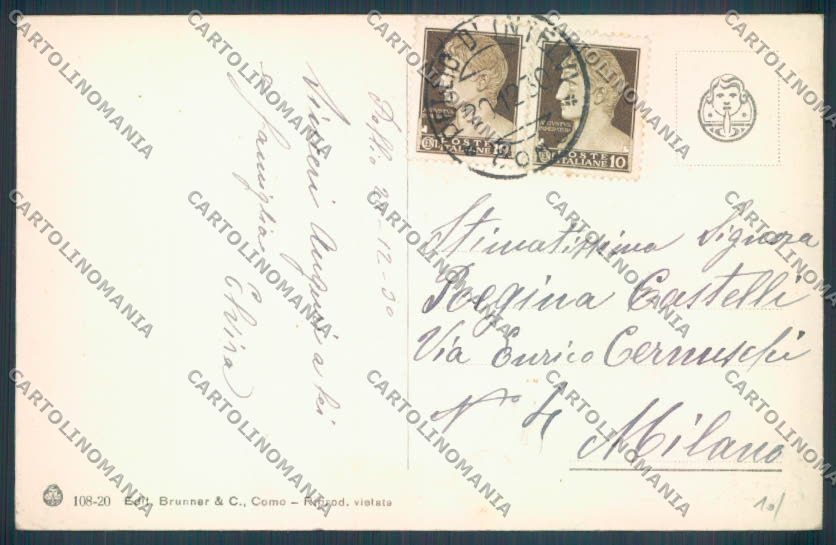 Pellio 22-12-30
Sinceri Auguri a lei
e famiglia
Elvira
POSTE ITALIANE 10
CENT.
POSTE ITALIANE 10
CENT.
PELLIO D'INTELVI
Stimatissima Signora
Regina Castelli
Via Enrico Cernuschi
N° 4
Milano
108-20 Edit. Brunner & C., Como – Riprod. vietata
CARTOLINOMANIA